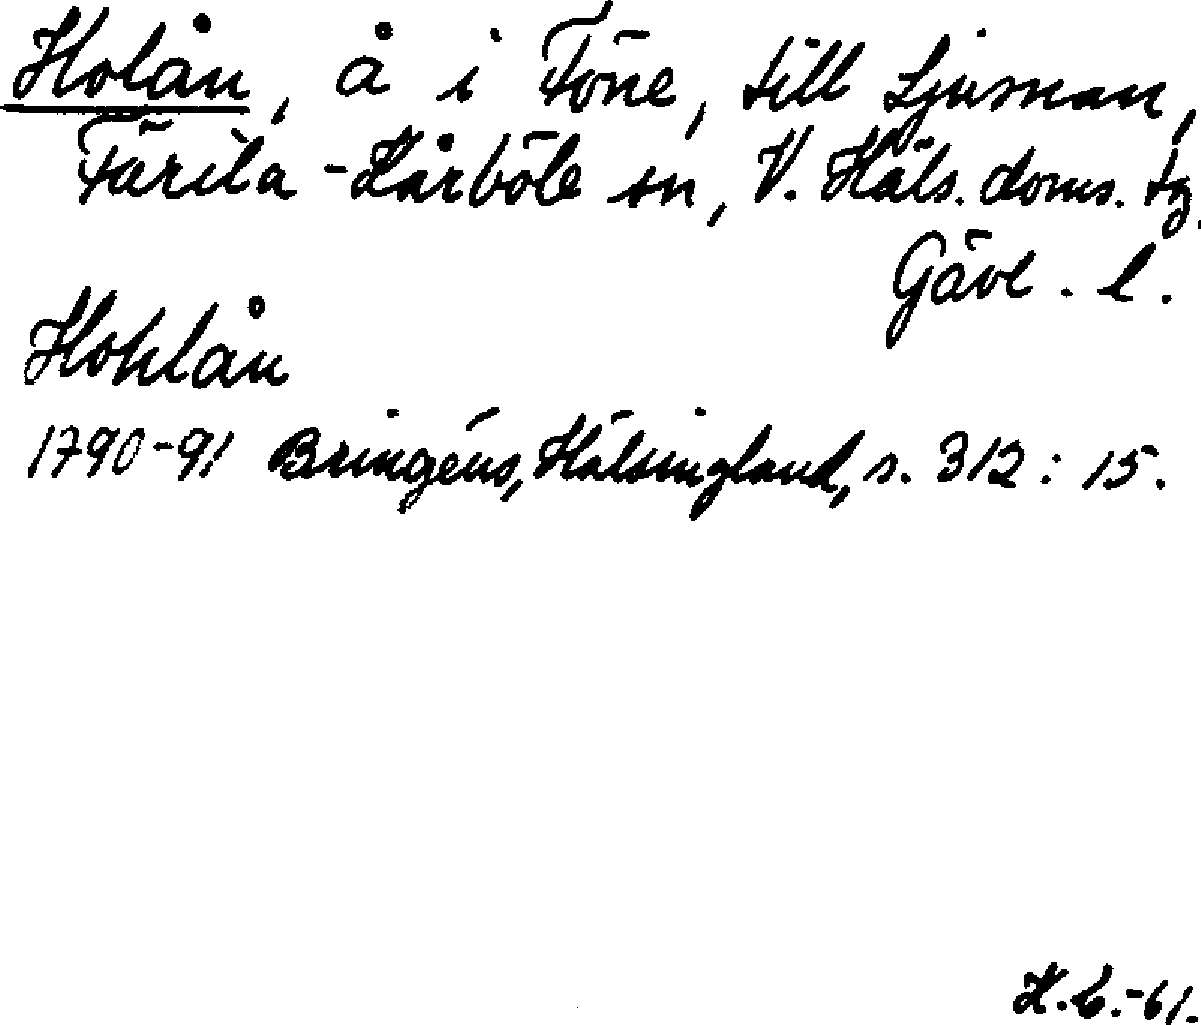 Holån, å i Föne, till Ljusnan,
Färila-Kårböle sn, V. Häls. doms. tg.
Gävl. l.
Hohlån
1790-91 Bringéus, Hälsingland, s. 312: 15.